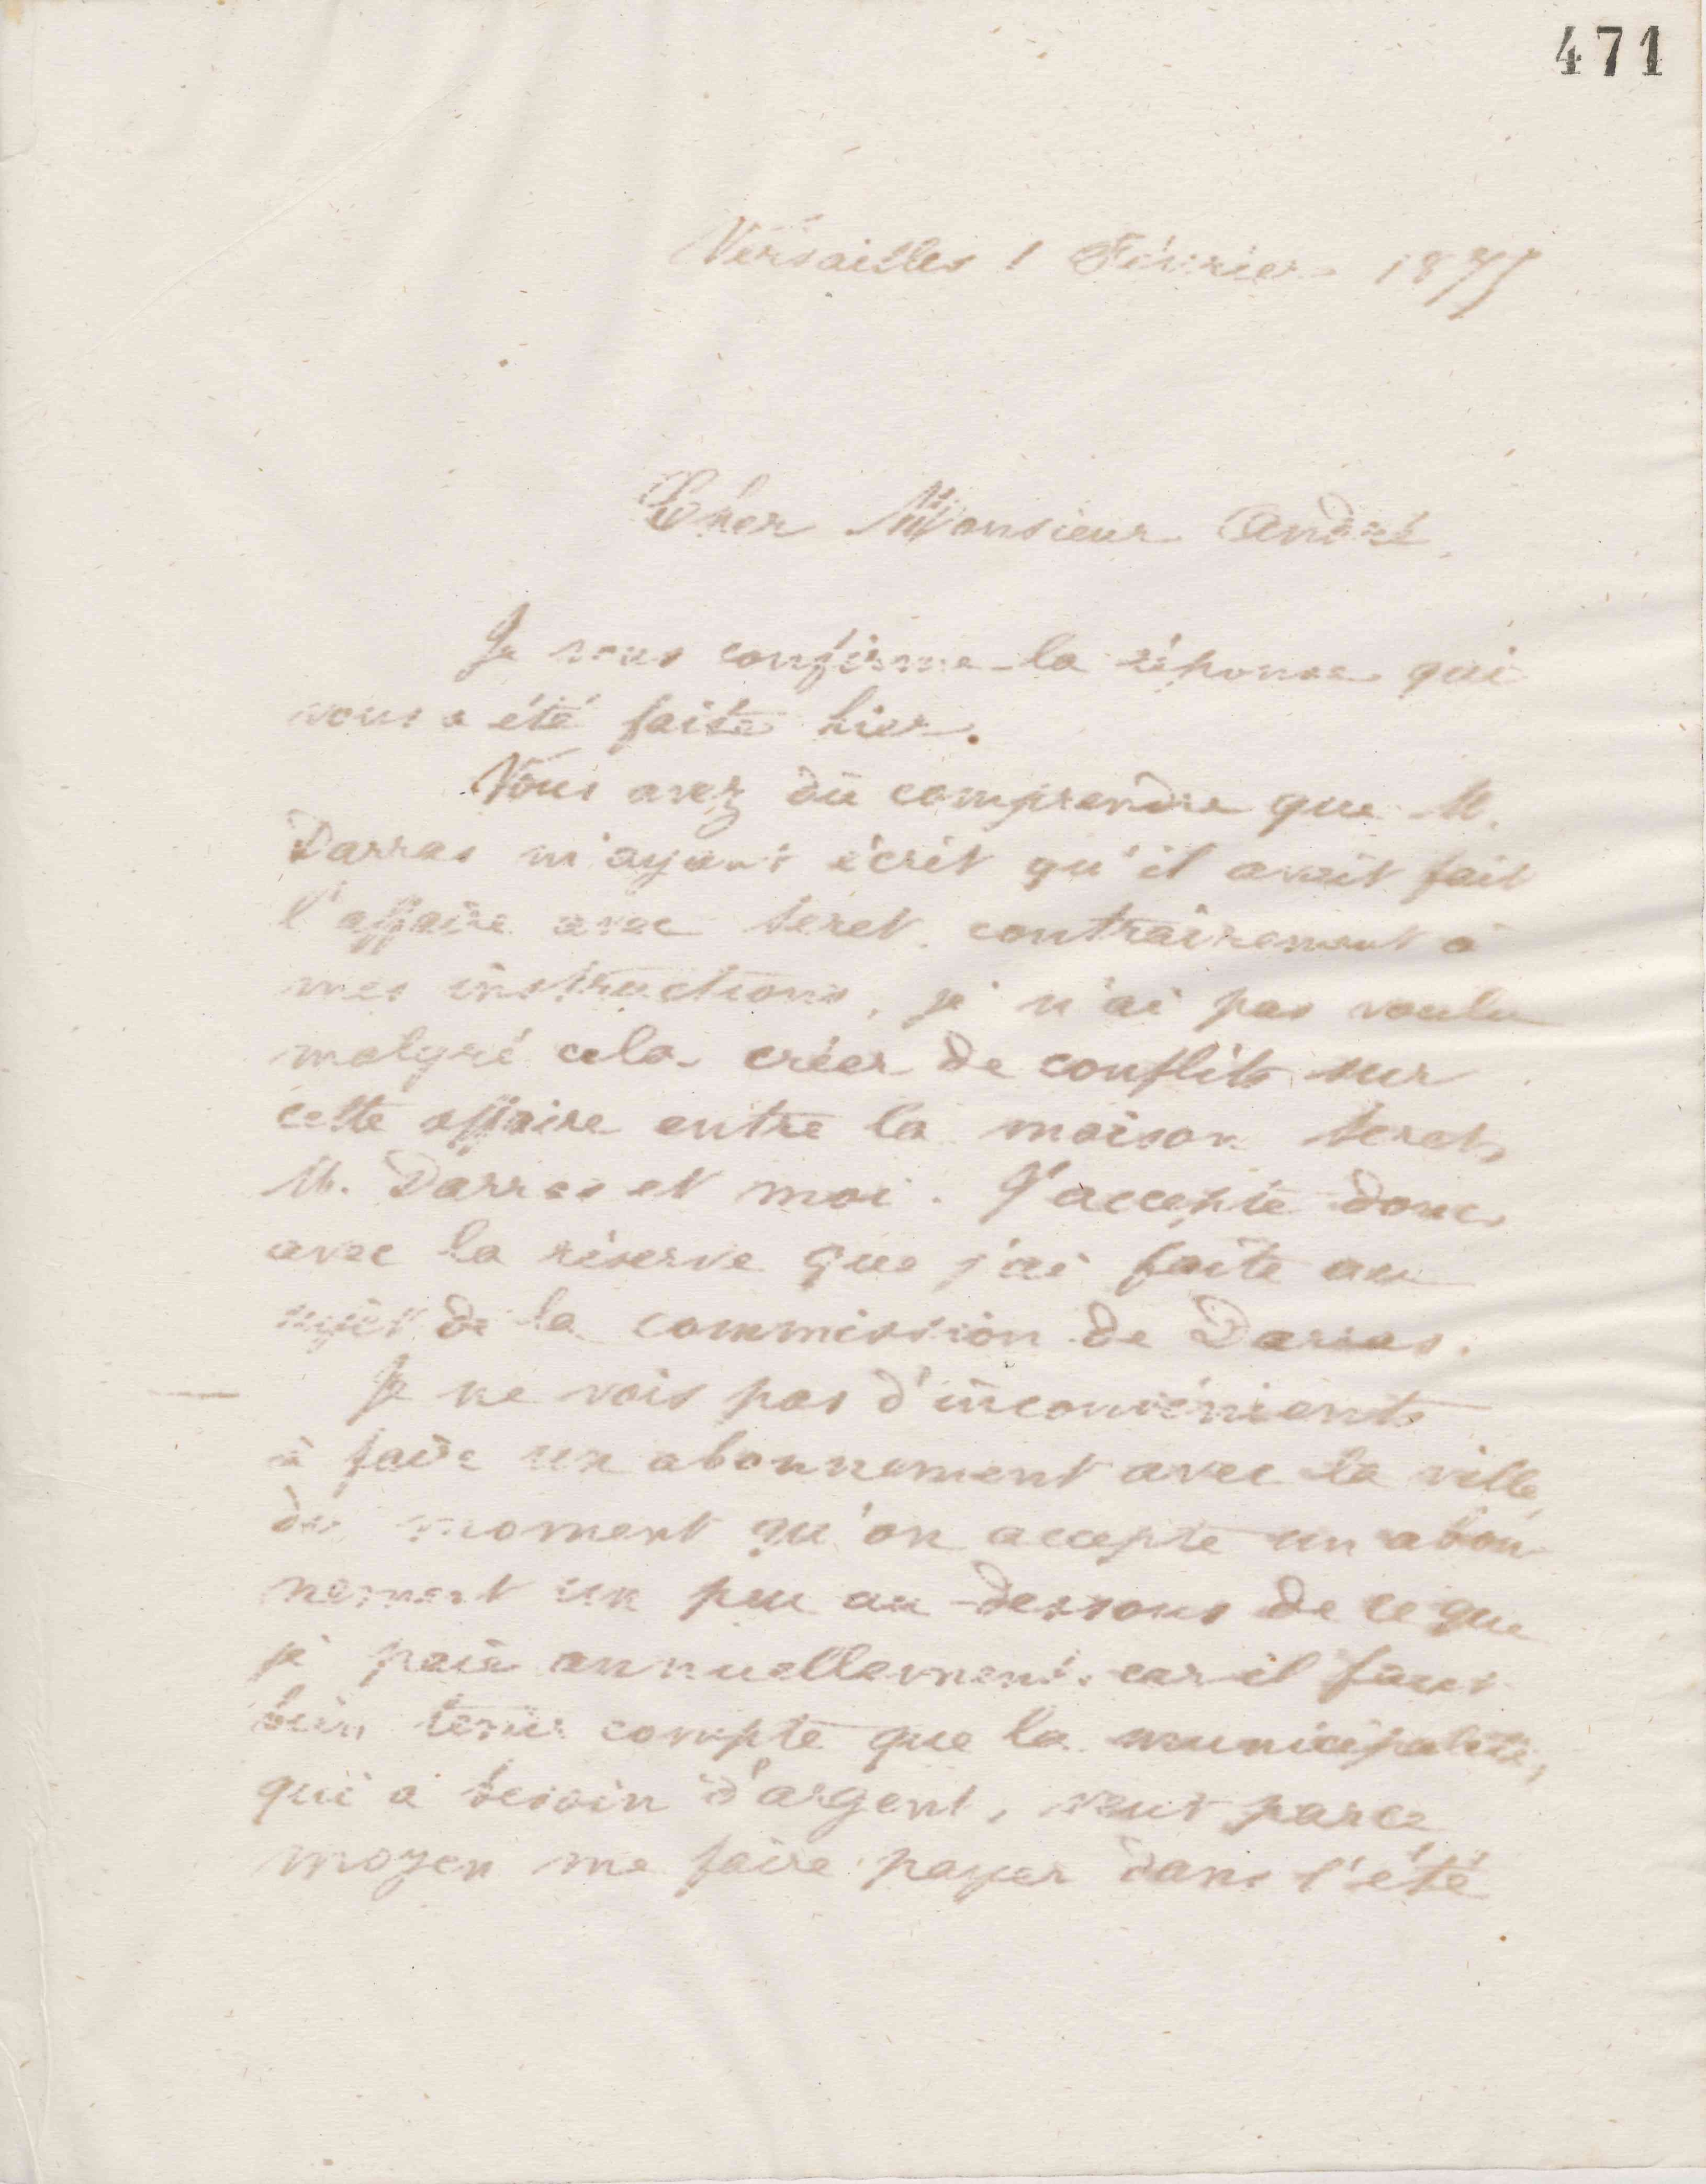 471
Versailles 1 Février 1875
Cher Monsieur André,
Je vous confirme la réponse qui
vous a été faite hier.
Vous avez dû comprendre que M.
Darras m'ayant écrit qu'il avait fait
l'affaire avec teret contrairement à
mes instructions, je n'ai pas voulu
malgré cela créer de conflits sur
cette affaire entre la maison teret,
M. Darras et moi. J'accepte donc,
avec la réserve que j'ai faite au
sujet de la commission de Darras.
Je ne vois pas d'inconvénients
à faire un abonnement avec la ville,
du moment qu'on accepte un abon-
nement un peu au-dessous de ce que
je paie annuellement. car il faut
bien tenir compte que la municipalité,
qui a besoin d'argent, veut par ce
moyen me faire payer dans l'été